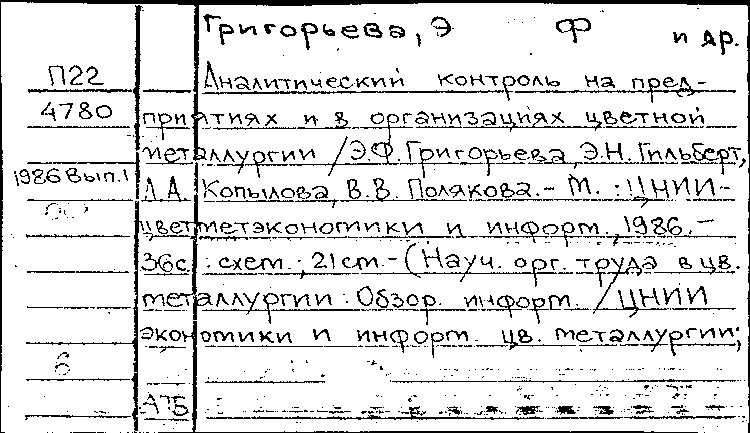 Григорьева, Э Ф и др.
П22 Аналитический контроль на пред-
4780 приятиях и в организациях цветной
металлургии / Э.Ф. Григорьева, Э.Н. Гильберт,
1986 Вып.1 Л.А. Копылова, В.В. Полякова. - М. : ЦНИИ-
цветметэкономики и информ., 1986. -
36с. : схем. ; 21 см. - (Науч. орг. труда в цв.
металлургии : Обзор. информ. / ЦНИИ
экономики и информ. цв. металлургии;
6